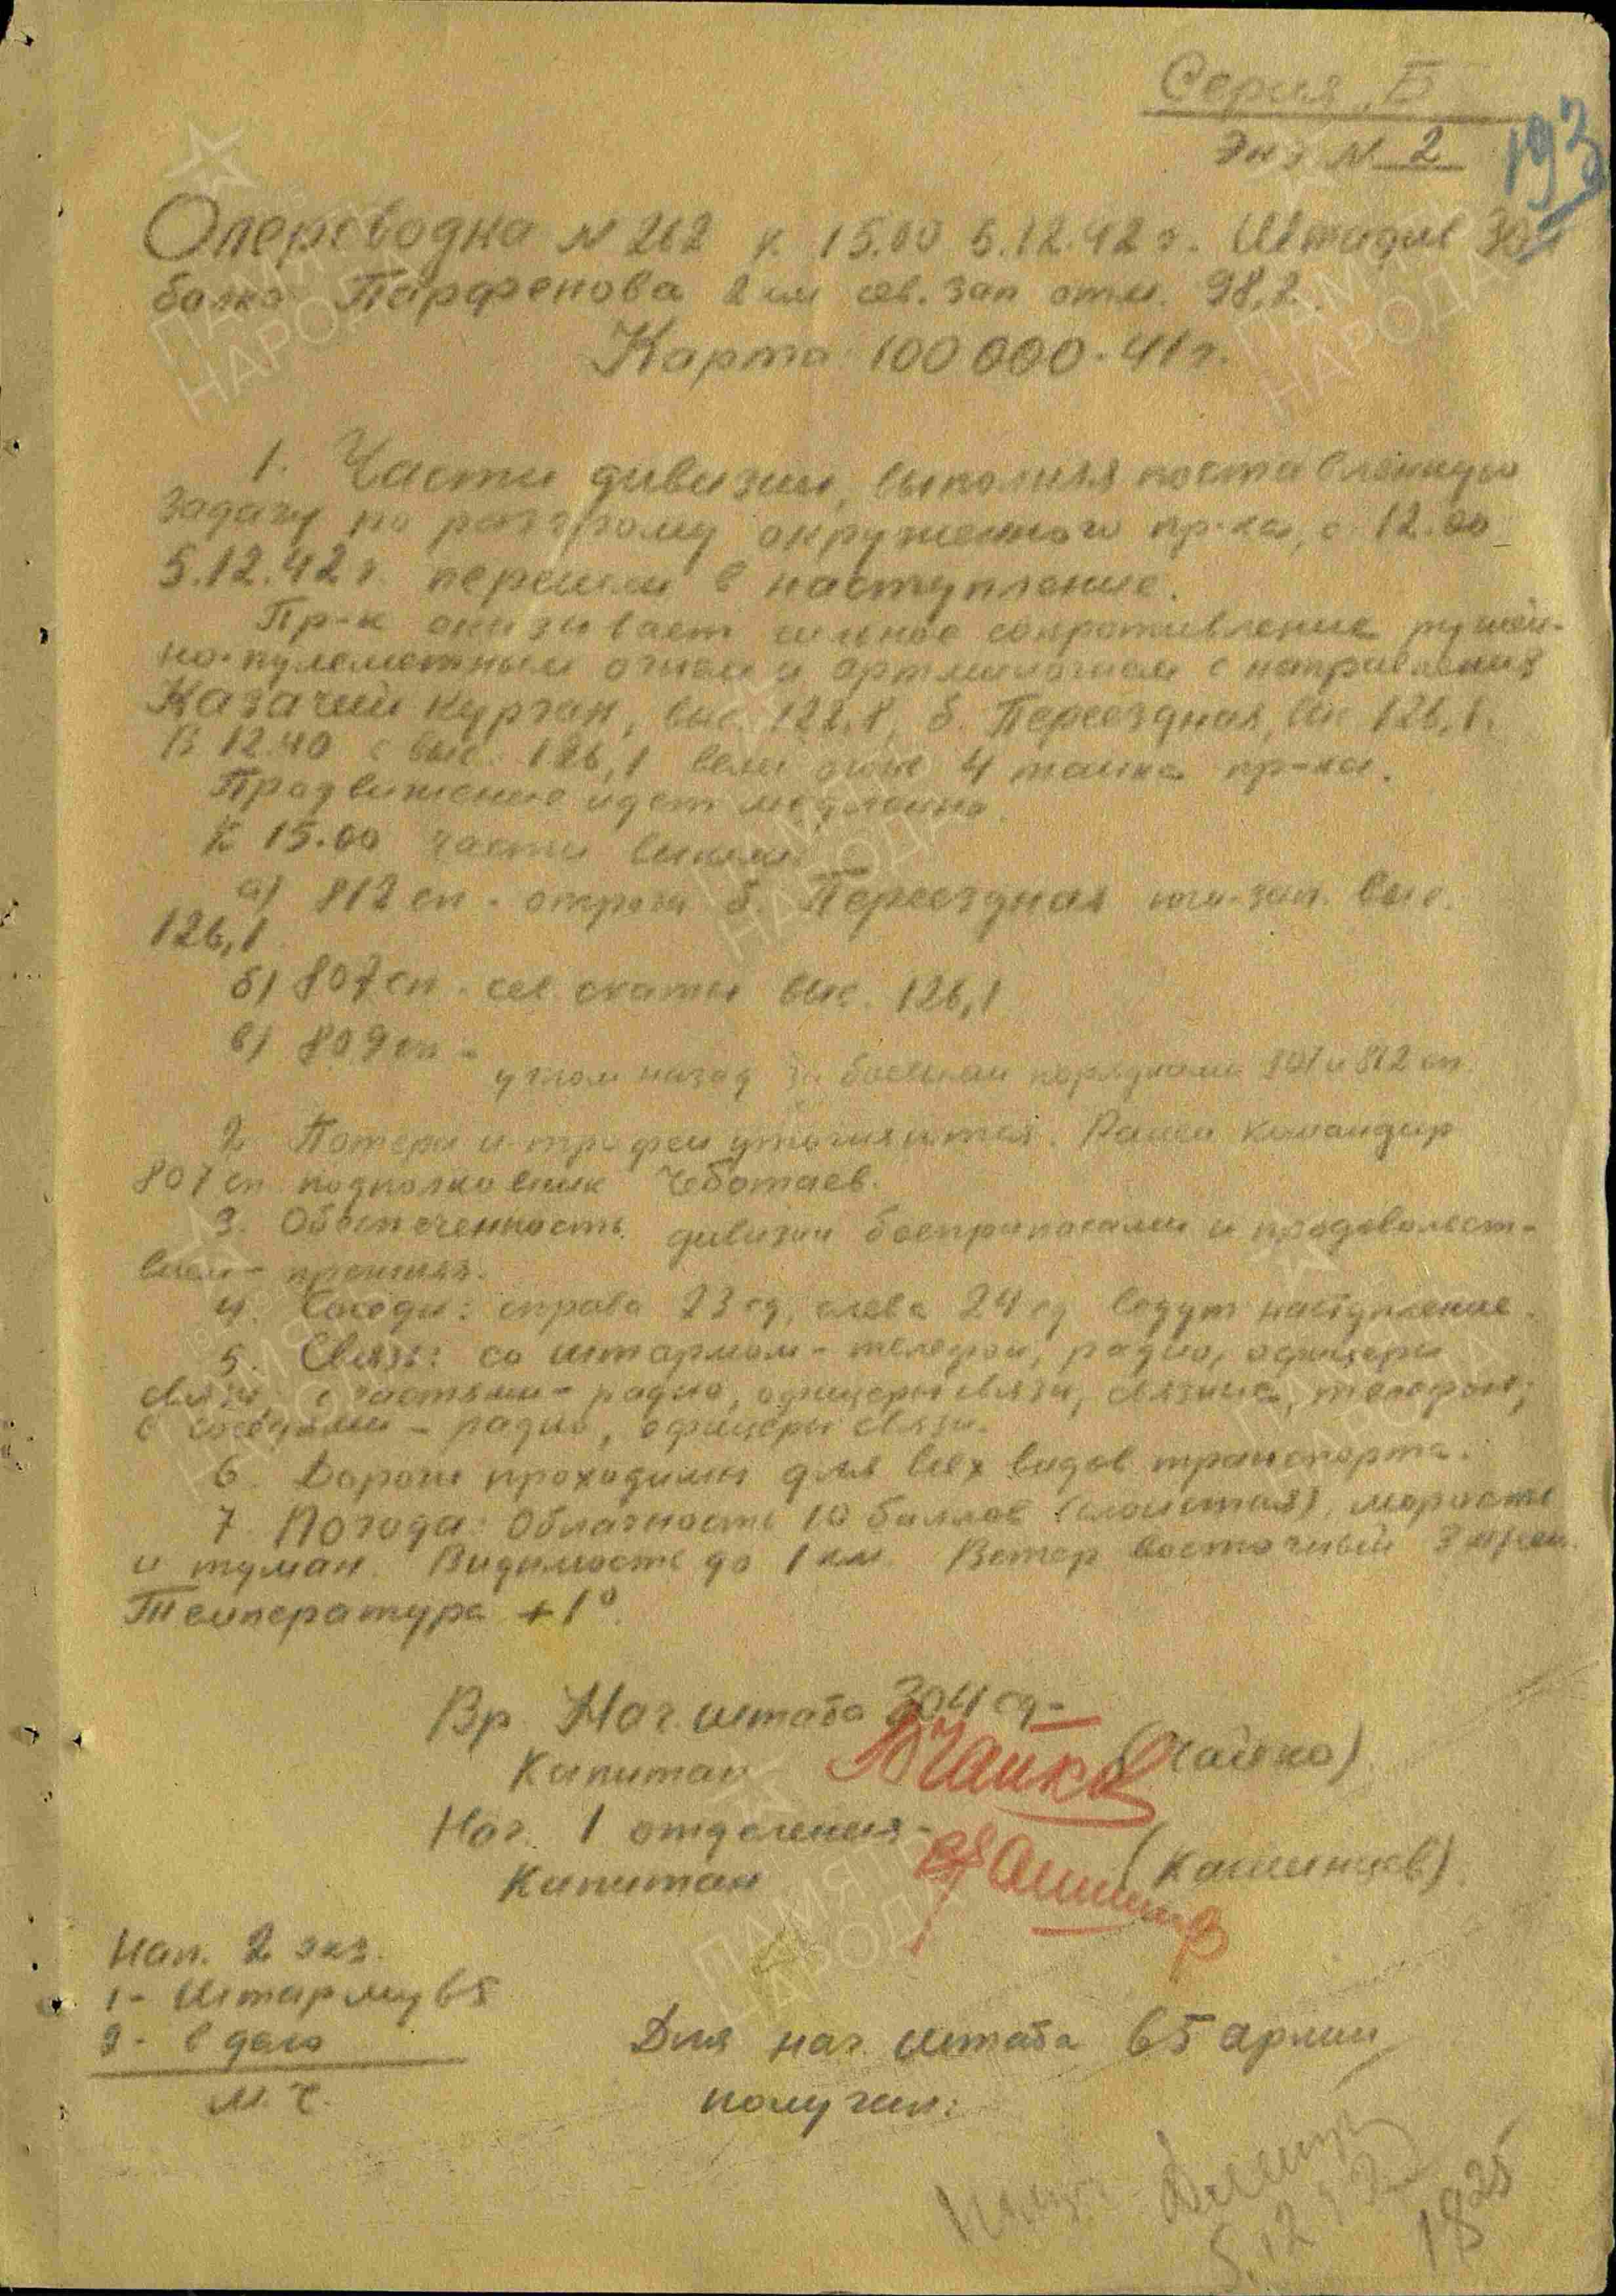 Серия „Б"
Экз N 2
193
Оперсводка N 262 к 15.00 5.12.42 г. Штадив 304
балка Парфенова 2 км сев. зап отм. 98,2.
Карта 100 000-41г.
1. Части дивизии, выполняя поставленную
задачу по разгрому окруженного пр-ка, с 12.00
5.12.42 г. перешли в наступление.
Пр-к оказывает сильное сопротивление ружей-
но-пулеметным огнем и артминогнем с направления
Казачий курган, выс. 122,8, б. Переездная, выс 126,1.
В 12.40 с выс. 126,1 вели огонь 4 танка пр-ка.
Продвижение идет медленно.
К 15.00 части вышли:
а) 812 сп - отрога б. Переездная юго-зап. выс.
126,1
б) 807 сп - сев скаты выс. 126,1
в) 809 сп - углом назад за боевыми порядками 807 и 812 сп.
2. Потери и трофеи уточняются. Ранен командир
807 сп подполковник Чеботаев.
3. Обеспеченность дивизии боеприпасами и продовольст-
вием - прежняя.
4. Соседи: справа 23 сд, слева 24 сд ведут наступление.
5. Связь: со штармом - телефон, радио, офицеры
связи, с частями - радио, офицеры связи, связные, телефон;
с соседями - радио, офицеры связи.
6. Дороги проходимы для всех видов транспорта.
7. Погода: Облачность 10 баллов (слоистая), морось
и туман. Видимость до 1 км. Ветер восточный 3 м/сек.
Температура +1°.
Вр. Нач. штаба 304 сд-
Капитан Чайко (Чайко)
Нач. 1 отделения-
Капитан (Кашинцев)
Нап. 2 экз.
1- Штарму 65
2- в дело
М.Ч.
Для нач. штаба 65 армии
получил:
5.12
18 25
ПАМЯТЬ
НАРОДА